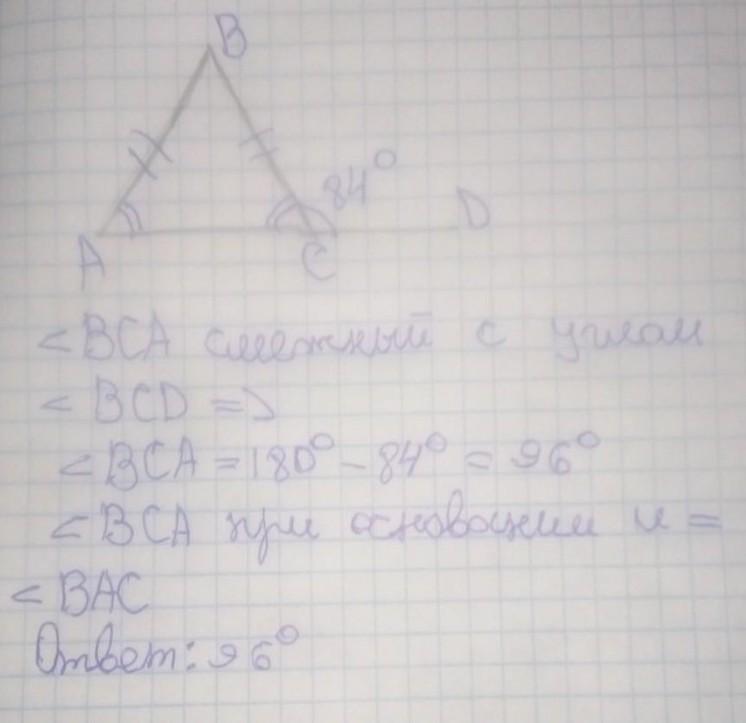 B
84°
A
C
D
<BCA смежный с углом
<BCD =>
<BCA = 180° - 84° = 96°
<BCA при основании и =
<BAC
Ответ: 96°